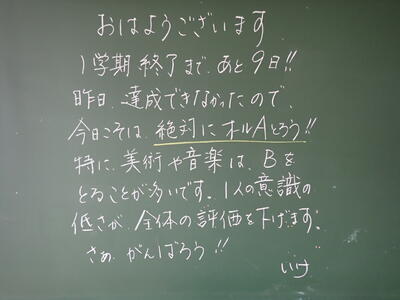 おはようございます
1学期終了まで、あと9日!!
昨日、達成できなかったので、
今日こそは、絶対にオールAとろう!!
特に、美術や音楽は、Bを
とることが多いです。1人の意識の
低さが、全体の評価を下げます。
さぁ、がんばろう!!
いけ